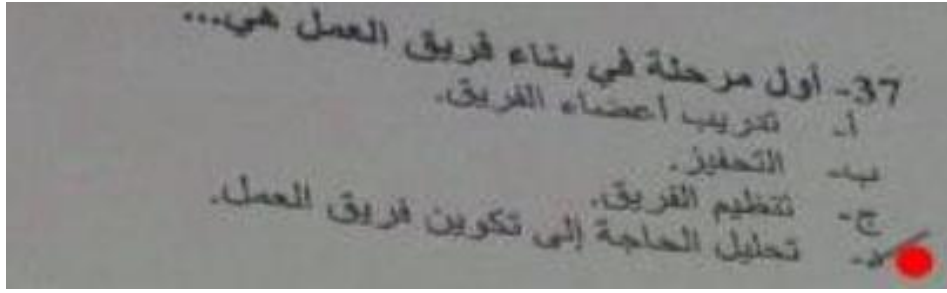 37- أول مرحلة في بناء فريق العمل هي...
أ- تدريب أعضاء الفريق.
ب- التحفيز.
ج- تنظيم الفريق.
د- تحليل الحاجة إلى تكوين فريق العمل.